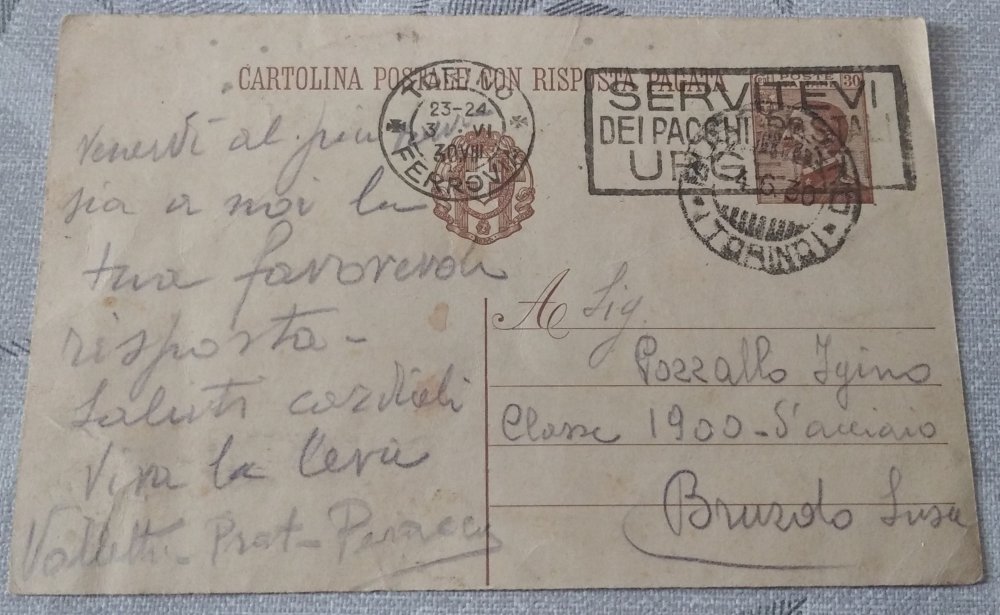 CARTOLINA POSTALE CON RISPOSTA PAGATA
POSTE 30
TORINO
23-24
3 VI
30 VIII
FERROVIA
SERVITEVI
DEI PACCHI POSTALI
URGE
4.6.30
(TORINO)
Venerdì al più
sia a noi la
tua favorevole
risposta -
Saluti cordiali
Viva la Leva
Valletti - Prat -
A Sig.
Pozzallo Igino
Classe 1900 - D'acciaio
Bruzolo Susa